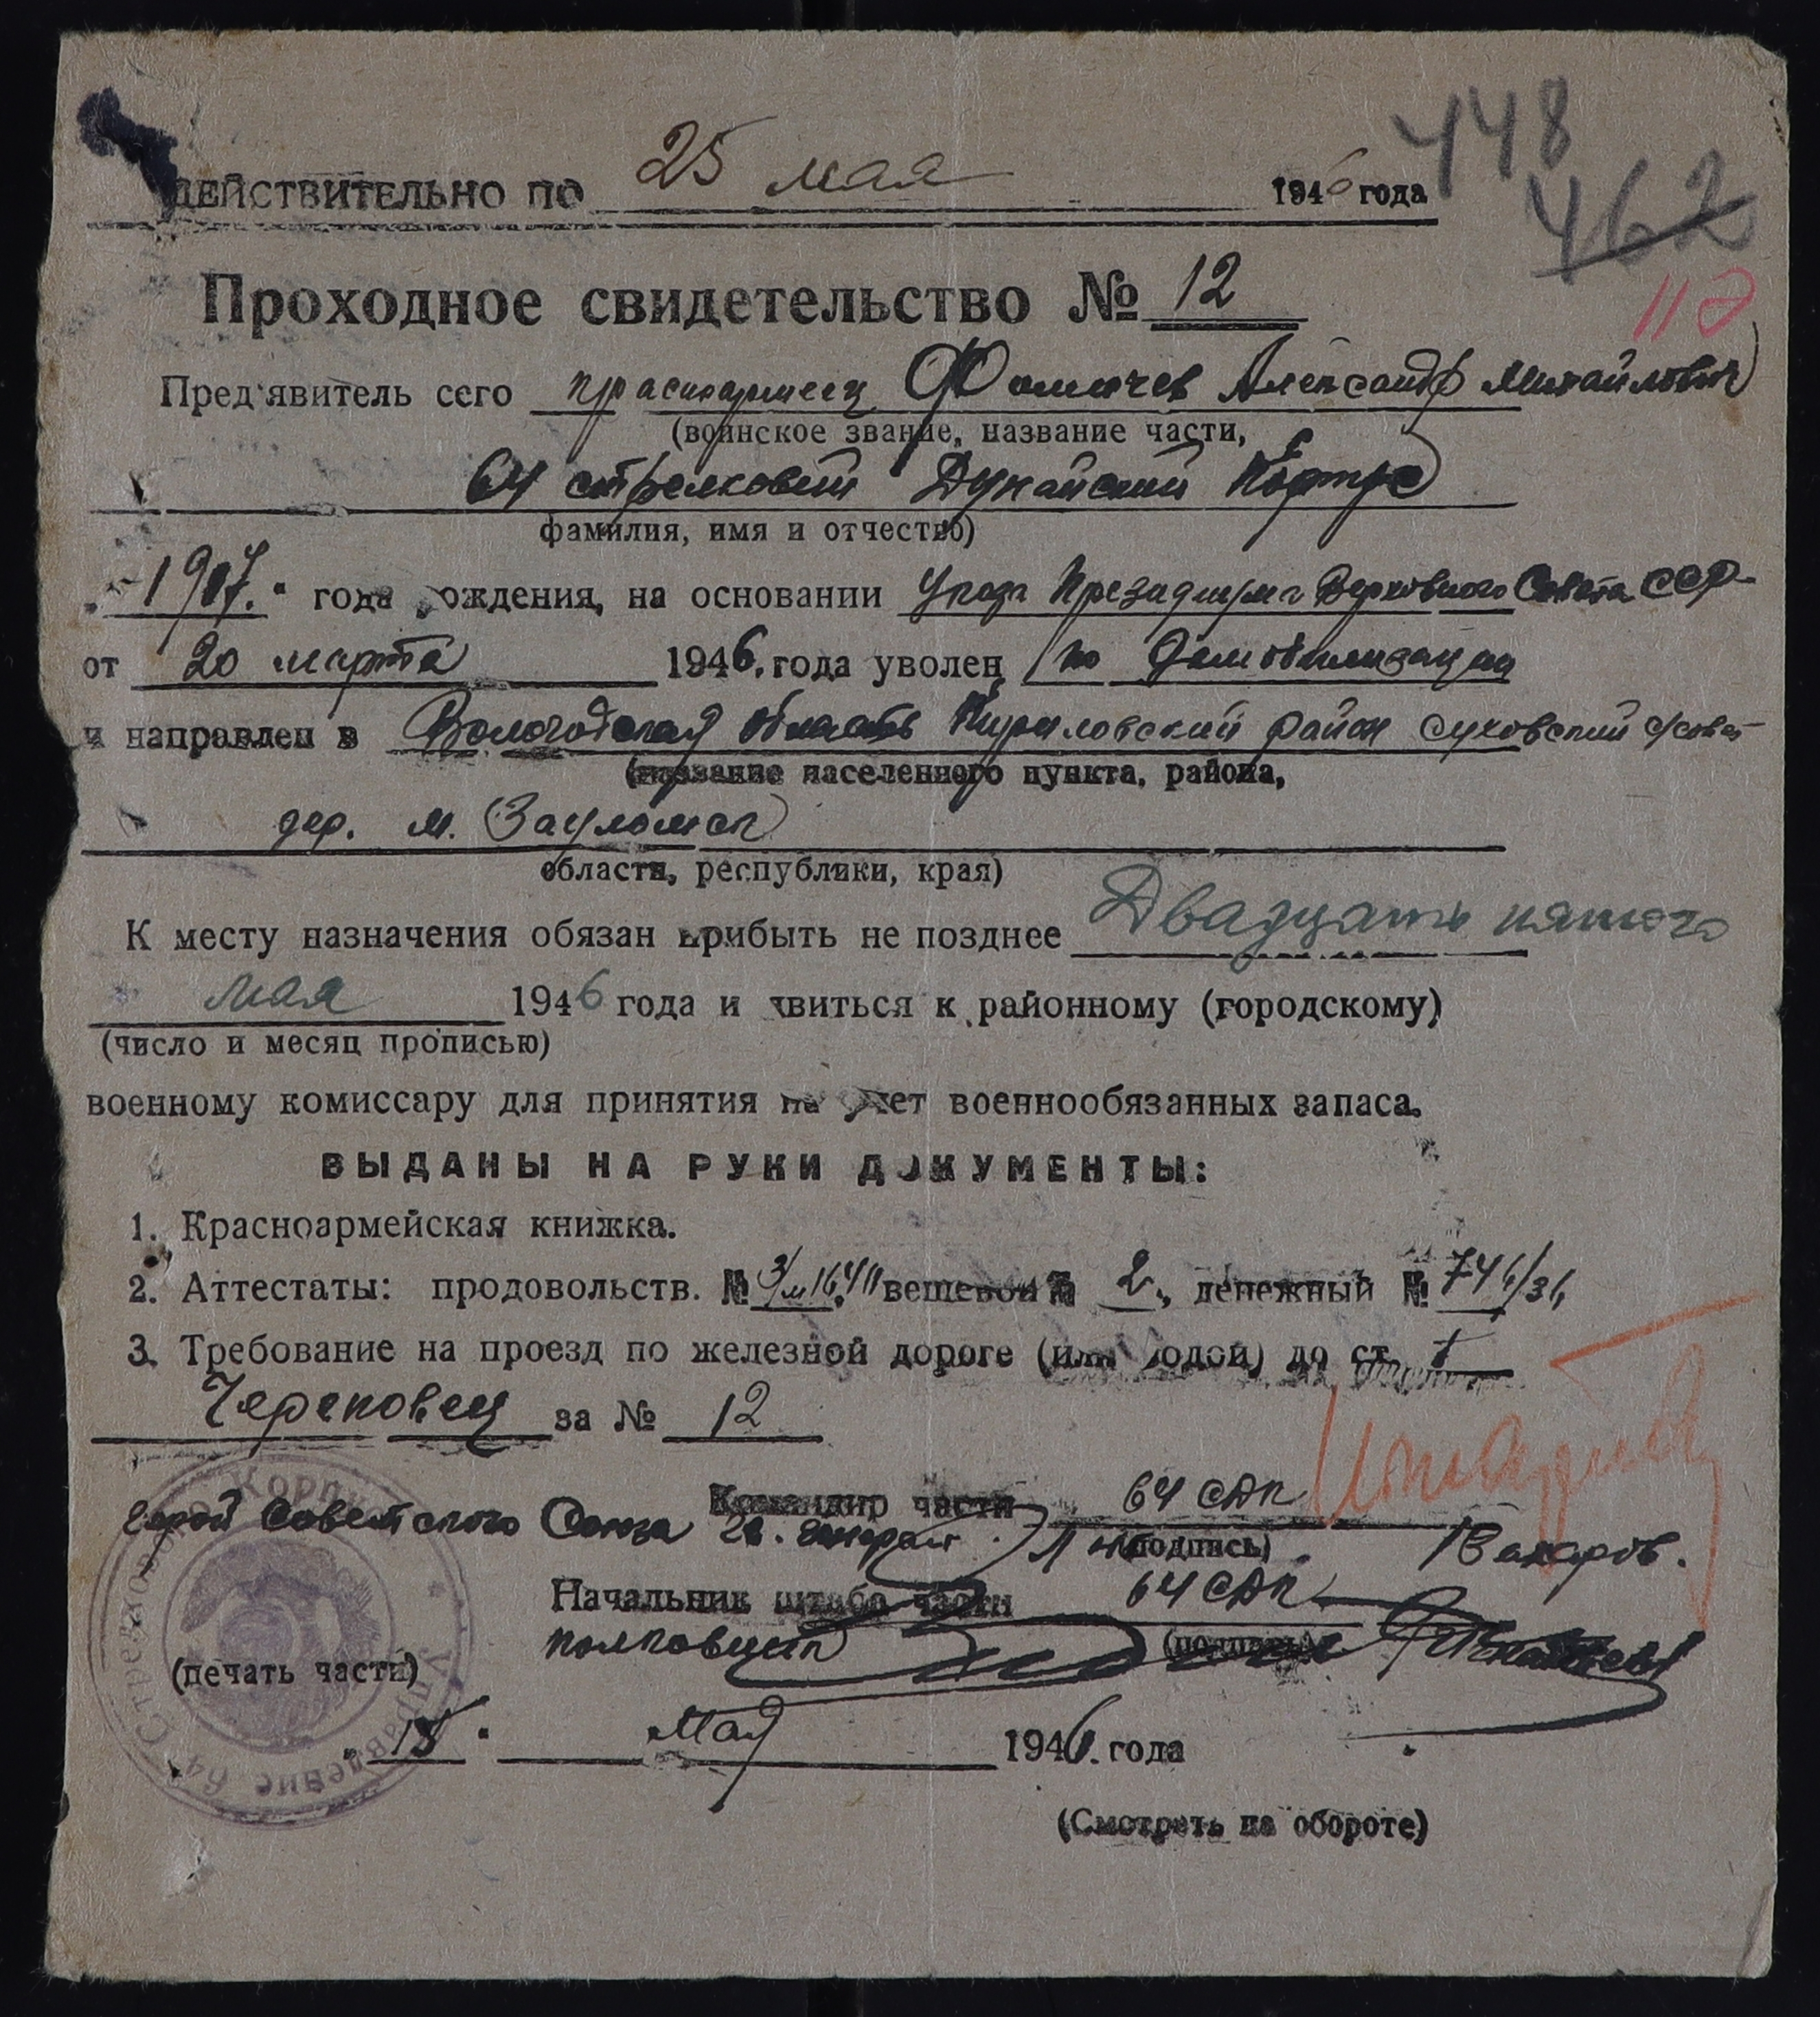 448
ДЕЙСТВИТЕЛЬНО ПО 25 мая 1946 года
462
Проходное свидетельство № 12
11
Пред'явитель сего красноармеец Фомичев Александр Михайлович
(воинское звание, название части,
64 стрелковый Дунайский Корпус
фамилия, имя и отчество)
"1907." года рождения, на основании Указа Президиума Верховного Совета ССР
от 20 марта 1946. года уволен по демобилизации
и направлен в Вологодская область Кириловский район Суховский с/совет
(название населенного пункта, района,
дер. м. Зауломск
области, республики, края)
К месту назначения обязан прибыть не позднее Двадцать пятого
мая 1946 года и явиться к районному (городскому)
(число и месяц прописью)
военному комиссару для принятия на учет военнообязанных запаса.
ВЫДАНЫ НА РУКИ ДОКУМЕНТЫ:
1. Красноармейская книжка.
2. Аттестаты: продовольств. № вещевой № 2, денежный №
3. Требование на проезд по железной дороге (или водой) до ст.
Череповец за № 12
Командир части 64 СДК
Герой Советского Союза генерал (подпись)
Начальник штаба части 64 СДК
полковник (подпись)
(печать части)
Управление 64 Стрелкового Корпуса
"15" Мая 1946. года
(Смотреть на обороте)